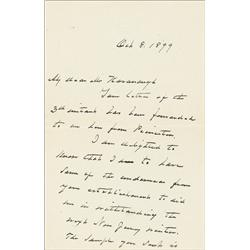 Oct 8. 1899
My dear Mr Kavanaugh
Your letter of the
5th instant has been forwarded
to me here from Princeton
I am delighted to
know that I am to have
some of the underwear from
your establishment to aid
me in withstanding the
rough New Jersey winter.
The sample you sent is